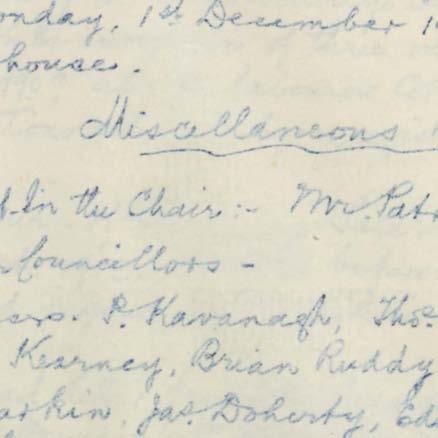 onday, 1st December 1
house.
Miscellaneous
In the Chair:- Mr. Patr
Councillors -
ers. P. Kavanagh, Thos.
Kearney, Brian Ruddy
arkin, Jas. Doherty, Ed